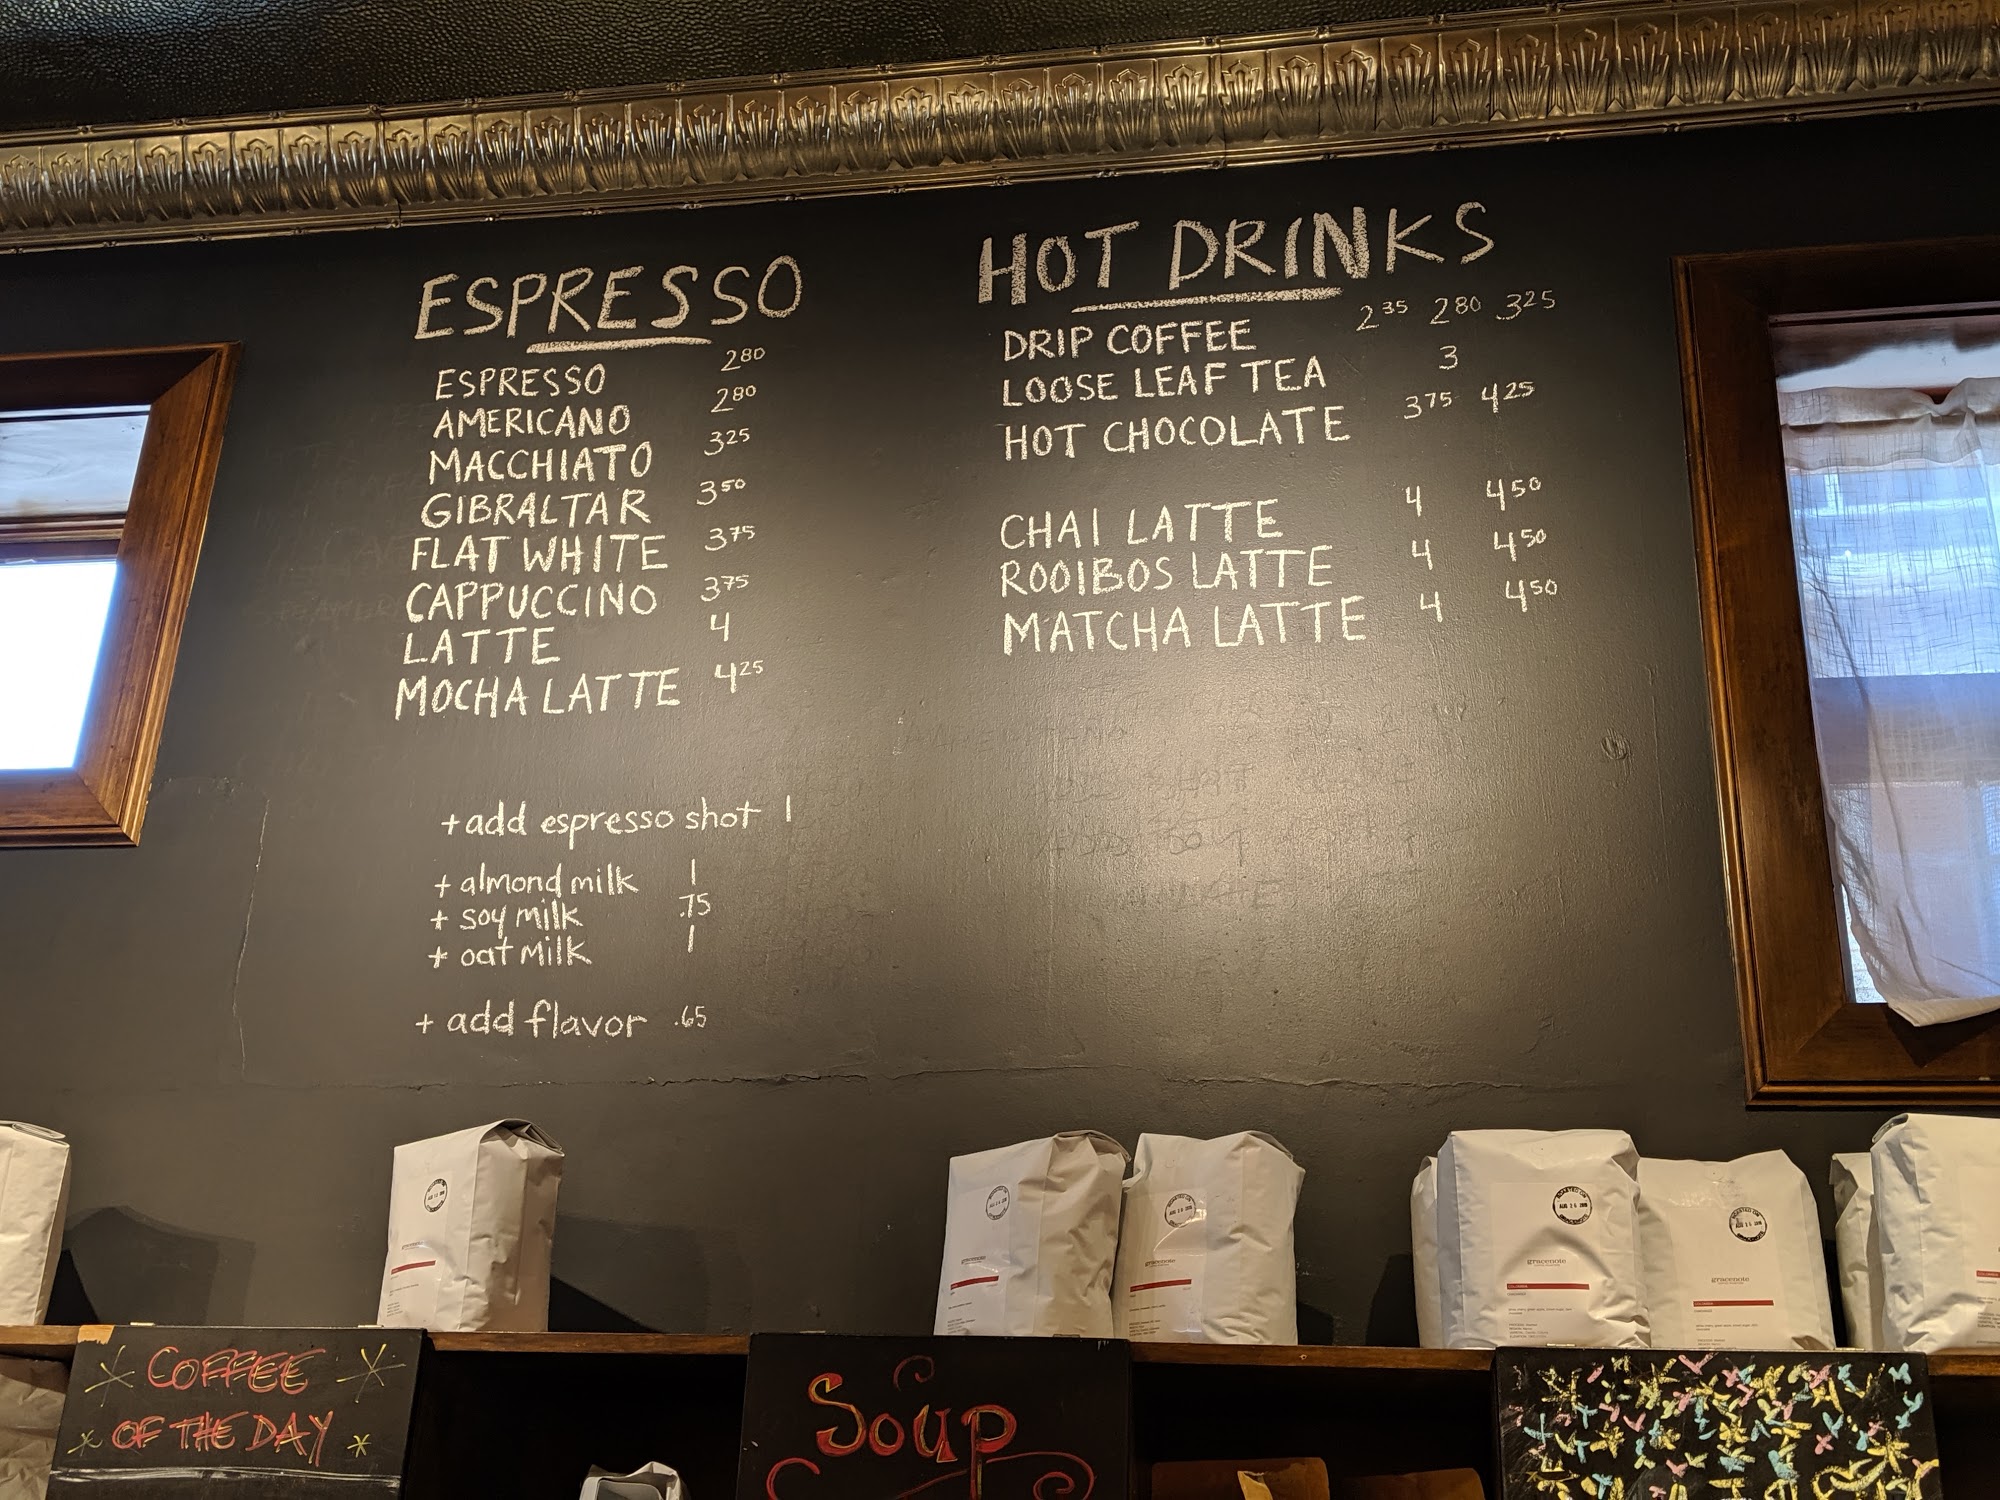 ESPRESSO
ESPRESSO 2 80
AMERICANO 2 80
MACCHIATO 3 25
GIBRALTAR 3 50
FLAT WHITE 3 75
CAPPUCCINO 3 75
LATTE 4
MOCHA LATTE 4 25
+ add espresso shot 1
+ almond milk 1
+ soy milk .75
+ oat milk 1
+ add flavor .65
HOT DRINKS
DRIP COFFEE 2 35 2 80 3 25
LOOSE LEAF TEA 3
HOT CHOCOLATE 3 75 4 25
CHAI LATTE 4 4 50
ROOIBOS LATTE 4 4 50
MATCHA LATTE 4 4 50
gracenote
gracenote
gracenote
gracenote
gracenote
ROASTED ON
COLOMBIA
ROASTED ON
COLOMBIA
COFFEE
OF THE DAY
Soup